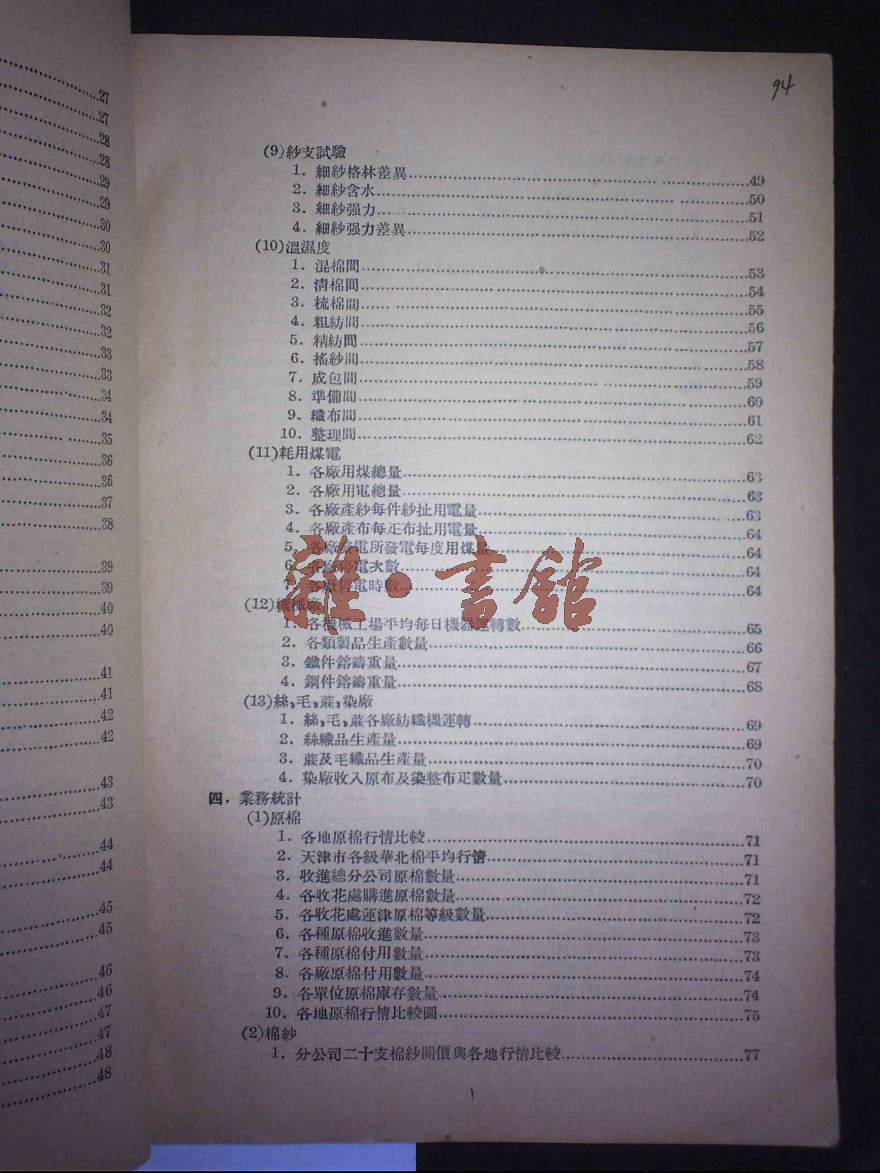 27
27
28
28
29
29
30
30
31
31
32
32
33
33
34
34
35
36
36
37
38
39
39
40
40
41
41
42
42
43
43
44
44
45
45
46
46
47
47
48
48
94
(9)紗支試驗
1. 細紗格林差異 49
2. 細紗含水 50
3. 細紗强力 51
4. 細紗强力差異 52
(10)溫濕度
1. 混棉間 53
2. 清棉間 54
3. 梳棉間 55
4. 粗紡間 56
5. 精紡間 57
6. 搖紗間 58
7. 成包間 59
8. 準備間 60
9. 織布間 61
10. 整理間 62
(11)耗用煤電
1. 各廠用煤總量 63
2. 各廠用電總量 63
3. 各廠產紗每件紗扯用電量 63
4. 各廠產布每疋布扯用電量 64
5. 各廠發電所發電每度用煤量 64
6. 各廠停電次數 64
7. 各廠停電時數 64
雜·書館
(12)機械廠
1. 各機械工場平均每日機器運轉數 65
2. 各類製品生產數量 66
3. 鐵件鎔鑄重量 67
4. 鋼件鎔鑄重量 68
(13)絲,毛,蔴,染廠
1. 絲,毛,蔴各廠紡織機運轉 69
2. 絲織品生產量 69
3. 蔴及毛織品生產量 70
4. 染廠收入原布及染整布疋數量 70
四. 業務統計
(1)原棉
1. 各地原棉行情比較 71
2. 天津市各級華北棉平均行情 71
3. 收進總分公司原棉數量 71
4. 各收花處購進原棉數量 72
5. 各收花處運津原棉等級數量 72
6. 各種原棉收進數量 73
7. 各種原棉付用數量 73
8. 各廠原棉付用數量 74
9. 各單位原棉庫存數量 74
10. 各地原棉行情比較圖 75
(2)棉紗
1. 分公司二十支棉紗開價與各地行情比較 77